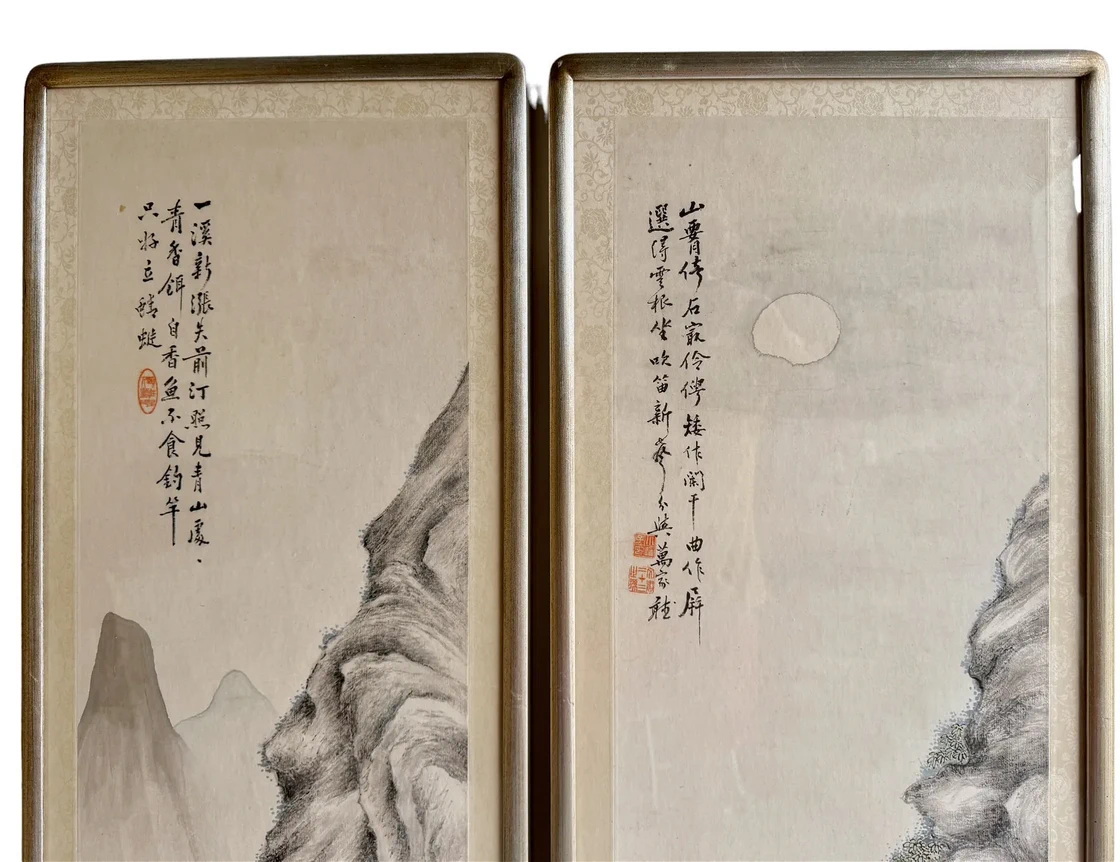 山腰倚石最伶俜矮作闌干曲作屏
選得雲根坐吹笛新聲分與萬家聽
一溪新漲失前汀照見青山處、
青香餌自香魚不食釣竿
只好立蜻蜓